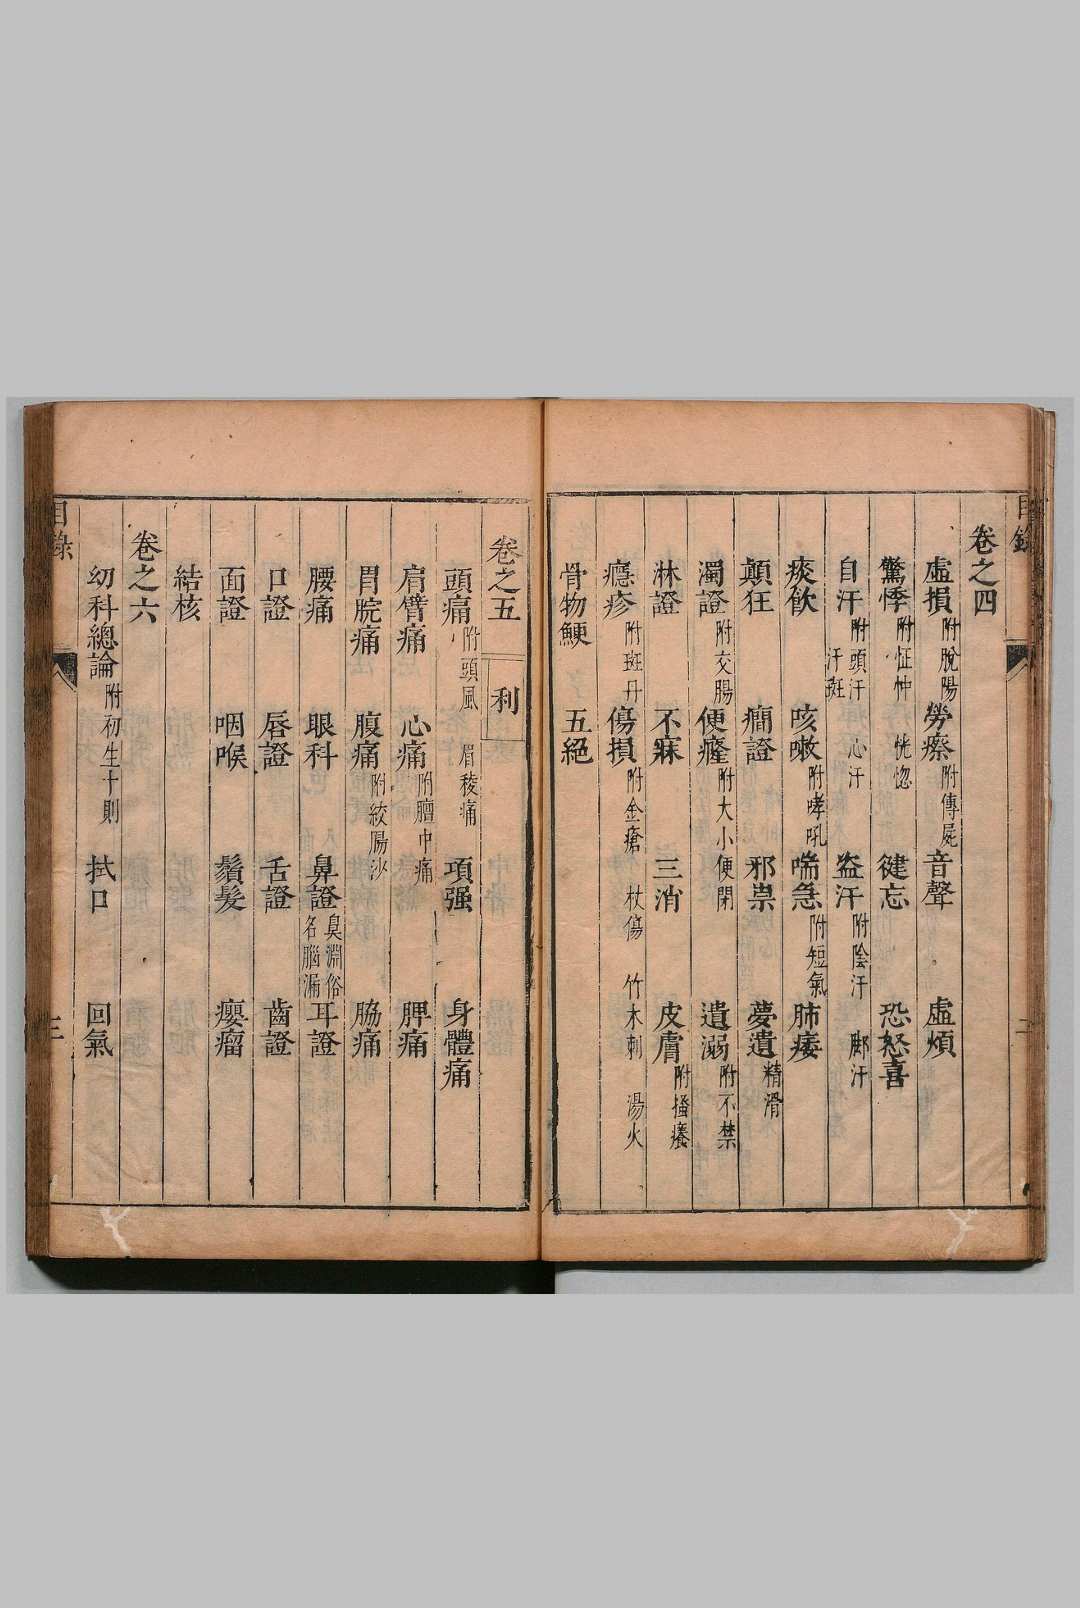 目錄
卷之四
虛損附脫陽 勞瘵附傳屍 音聲 虛煩
驚悸附怔忡 恍惚 健忘 恐怒喜
自汗附頭汗 心汗 汗斑 盜汗附陰汗 脚汗
痰飲 咳嗽附哮吼 喘急附短氣 肺痿
顛狂 癎證 邪祟 夢遺精滑
濁證附交腸 便癃附大小便閉 遺溺附不禁
淋證 不寐 三消 皮膚附搔癢
癮疹附斑丹 傷損附金瘡 杖傷 竹木刺 湯火
骨物鯁 五絕
二
卷之五 利
頭痛附頭風 眉稜痛 項强 身體痛
肩臂痛 心痛附膻中痛 脾痛
胃脘痛 腹痛附絞腸沙 脇痛
腰痛 眼科 鼻證鼻淵俗名腦漏 耳證
口證 唇證 舌證 齒證
面證 咽喉 鬚髮 癭瘤
結核
卷之六
幼科總論附初生十則 拭口 回氣
目錄
三